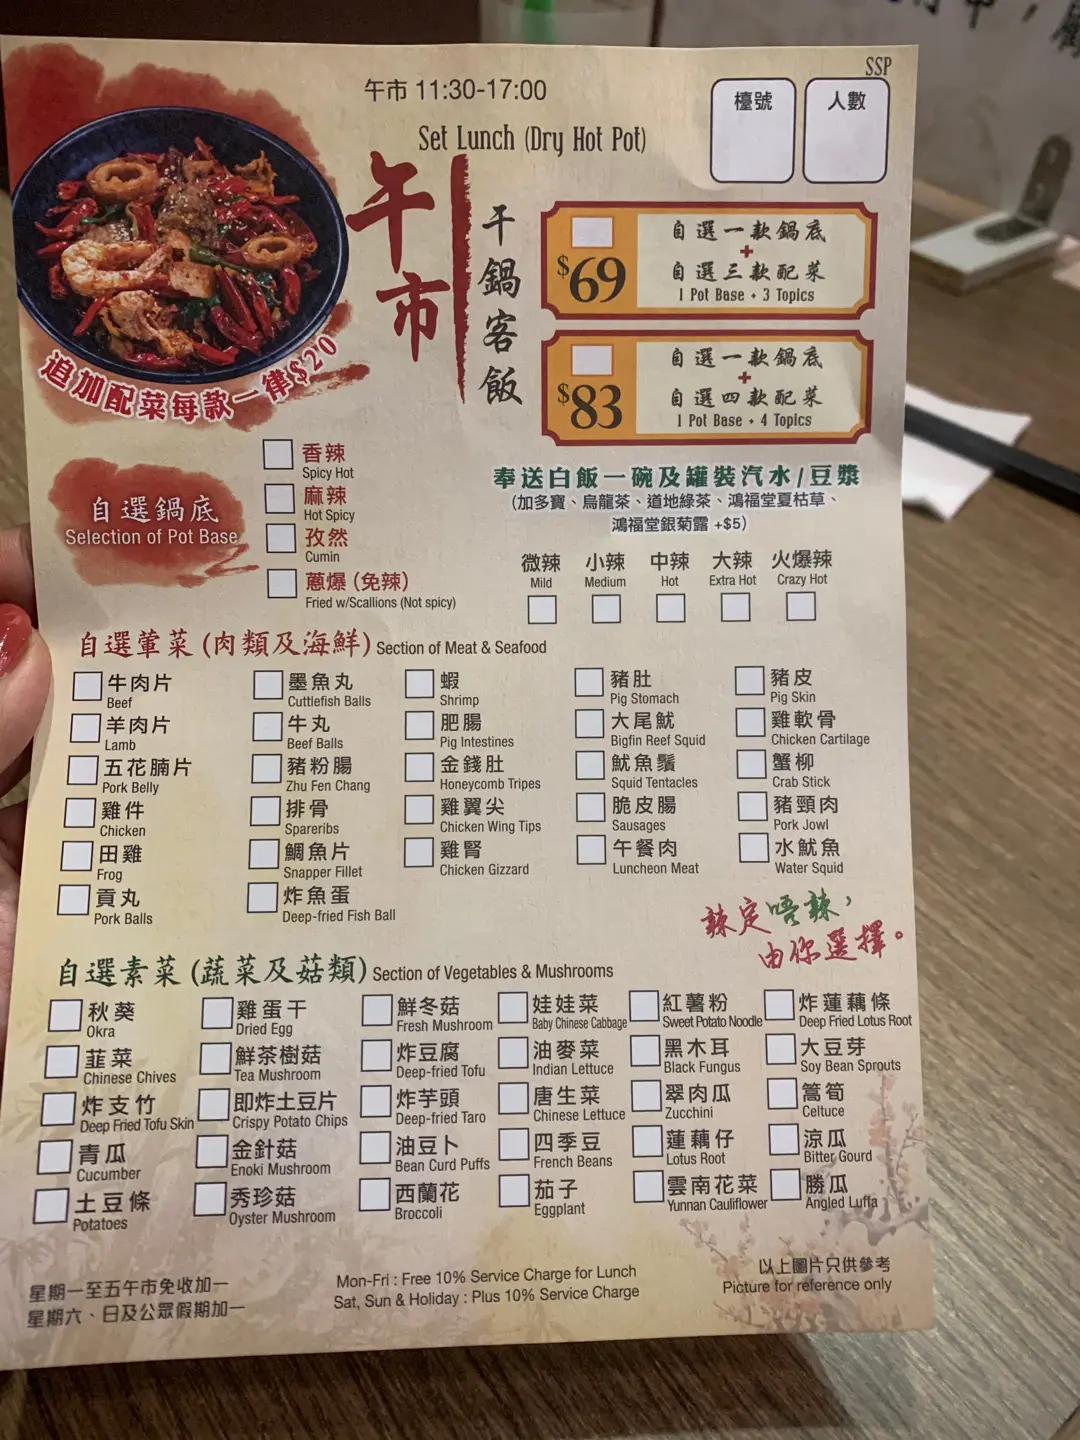 SSP
午市 11:30-17:00
Set Lunch (Dry Hot Pot)
檯號
人數
午市
干鍋客飯
$69
自選一款鍋底
+
自選三款配菜
1 Pot Base + 3 Topics
$83
自選一款鍋底
+
自選四款配菜
1 Pot Base + 4 Topics
追加配菜每款一律$20
自選鍋底
Selection of Pot Base
香辣
Spicy Hot
麻辣
Hot Spicy
孜然
Cumin
蔥爆 (免辣)
Fried w/Scallions (Not spicy)
奉送白飯一碗及罐裝汽水/豆漿
(加多寶、烏龍茶、道地綠茶、鴻福堂夏枯草、
鴻福堂銀菊露 +$5)
微辣 小辣 中辣 大辣 火爆辣
Mild Medium Hot Extra Hot Crazy Hot
自選葷菜 (肉類及海鮮) Section of Meat & Seafood
牛肉片 墨魚丸 蝦 豬肚 豬皮
Beef Cuttlefish Balls Shrimp Pig Stomach Pig Skin
羊肉片 牛丸 肥腸 大尾魷 雞軟骨
Lamb Beef Balls Pig Intestines Bigfin Reef Squid Chicken Cartilage
五花腩片 豬粉腸 金錢肚 魷魚鬚 蟹柳
Pork Belly Zhu Fen Chang Honeycomb Tripes Squid Tentacles Crab Stick
雞件 排骨 雞翼尖 脆皮腸 豬頸肉
Chicken Spareribs Chicken Wing Tips Sausages Pork Jowl
田雞 鯛魚片 雞腎 午餐肉 水魷魚
Frog Snapper Fillet Chicken Gizzard Luncheon Meat Water Squid
貢丸 炸魚蛋
Pork Balls Deep-fried Fish Ball
辣定唔辣，
由你選擇。
自選素菜 (蔬菜及菇類) Section of Vegetables & Mushrooms
秋葵 雞蛋干 鮮冬菇 娃娃菜 紅薯粉 炸蓮藕條
Okra Dried Egg Fresh Mushroom Baby Chinese Cabbage Sweet Potato Noodle Deep Fried Lotus Root
韮菜 鮮茶樹菇 炸豆腐 油麥菜 黑木耳 大豆芽
Chinese Chives Tea Mushroom Deep-fried Tofu Indian Lettuce Black Fungus Soy Bean Sprouts
炸支竹 即炸土豆片 炸芋頭 唐生菜 翠肉瓜 萵筍
Deep Fried Tofu Skin Crispy Potato Chips Deep-fried Taro Chinese Lettuce Zucchini Celtuce
青瓜 金針菇 油豆卜 四季豆 蓮藕仔 涼瓜
Cucumber Enoki Mushroom Bean Curd Puffs French Beans Lotus Root Bitter Gourd
土豆條 秀珍菇 西蘭花 茄子 雲南花菜 勝瓜
Potatoes Oyster Mushroom Broccoli Eggplant Yunnan Cauliflower Angled Luffa
星期一至五午市免收加一
星期六、日及公眾假期加一
Mon-Fri : Free 10% Service Charge for Lunch
Sat, Sun & Holiday : Plus 10% Service Charge
以上圖片只供參考
Picture for reference only